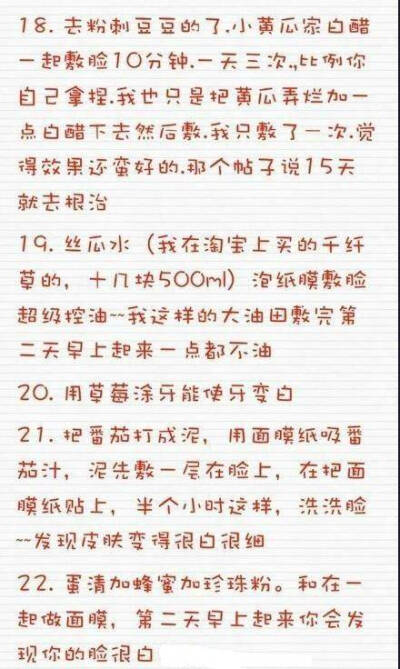 18. 去粉刺豆豆的了.小黄瓜家白醋
一起敷脸10分钟.一天三次.,比例你
自己拿捏.我也只是把黄瓜弄烂加一
点白醋下去然后敷.我只敷了一次.觉
得效果还蛮好的.那个帖子说15天
就去根治
19. 丝瓜水（我在淘宝上买的千纤
草的，十几块500ml）泡纸膜敷脸
超级控油~~我这样的大油田敷完第
二天早上起来一点都不油
20. 用草莓涂牙能使牙变白
21. 把番茄打成泥，用面膜纸吸番
茄汁，泥先敷一层在脸上，在把面
膜纸贴上，半个小时这样，洗洗脸
~~发现皮肤变得很白很细
22. 蛋清加蜂蜜加珍珠粉。和在一
起做面膜，第二天早上起来你会发
现你的脸很白